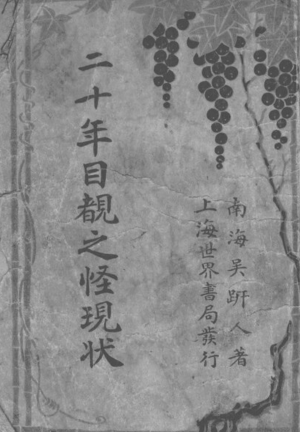 二十年目覩之怪現状
南海吴趼人著
上海世界書局發行